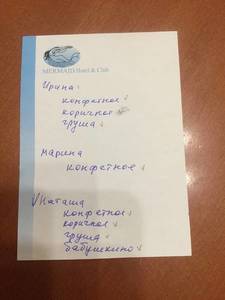 MERMAID Hotel & Club
Ирина:
конфетное
коричное
груша
Марина
конфетное
Наташа
конфетное
коричное
груша
бабушкино